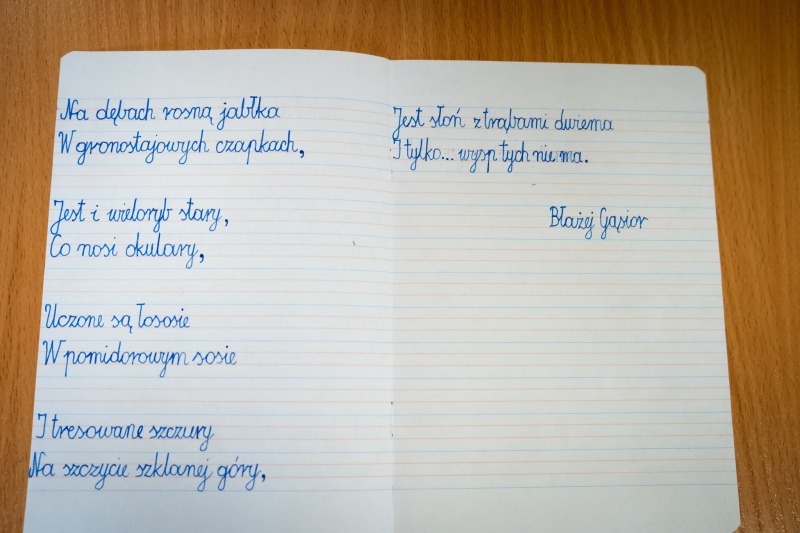 Na dębach rosną jabłka
W gronostajowych czapkach,
Jest i wieloryb stary,
Co nosi okulary,
Uczone są łososie
W pomidorowym sosie
I tresowane szczury
Na szczycie szklanej góry,
Jest słoń z trąbami dwiema
I tylko... wysp tych nie ma.
Błażej Gąsior